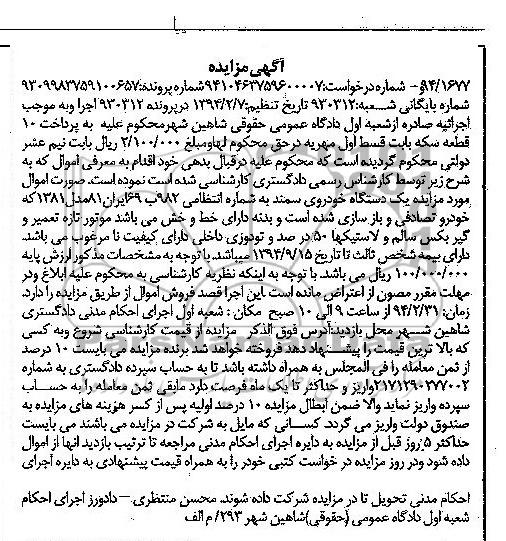 آگهی مزایده
۹۴/۱۶۷۷- شماره درخواست:۹۴۱۰۴۶۳۷۵۹۶۰۰۰۰۷شماره پرونده:۹۳۰۹۹۸۳۷۵۹۱۰۰۶۵۷
شماره بایگانی شعبه:۹۳۰۳۱۲ تاریخ تنظیم:۱۳۹۴/۲/۷ درپرونده ۹۳۰۳۱۲ اجرا وبه موجب
اجرائیه صادره ازشعبه اول دادگاه عمومی حقوقی شاهین شهرمحکوم علیه به پرداخت ۱۰
قطعه سکه بابت قسط اول مهریه درحق محکوم لهاومبلغ ۲/۱۰۰/۰۰۰ ریال بابت نیم عشر
دولتی محکوم گردیده است که محکوم علیه درقبال بدهی خود اقدام به معرفی اموال که به
شرح زیر توسط کارشناس رسمی دادگستری کارشناسی شده است نموده است. صورت اموال
مورد مزایده یک دستگاه خودروی سمند به شماره انتظامی ۹۸۲ب ۶۹ایران۸۱مدل۱۳۸۱که
خودرو تصادفی و باز سازی شده است و بدنه دارای خط و خش می باشد موتور تازه تعمیر و
گیر بکس سالم و لاستیکها ۵۰ در صد و تودوزی داخلی دارای کیفیت نا مرغوب می باشد.
دارای بیمه شخص ثالث تا تاریخ ۱۳۹۴/۹/۱۵ میباشد. با توجه به مشخصات مذکور ارزش پایه
۱۰۰/۰۰۰/۰۰۰ ریال می باشد. با توجه به اینکه نظریه کارشناسی به محکوم علیه ابلاغ ودر
مهلت مقرر مصون از اعتراض مانده است این اجرا قصد فروش اموال از طریق مزایده را دارد.
زمان: ۹۴/۲/۳۱ از ساعت ۹ الی ۱۰ صبح مکان : شعبه اول اجرای احکام مدنی دادگستری
شاهین شهر محل بازدید:آدرس فوق الذکر مزایده از قیمت کارشناسی شروع وبه کسی
که بالا ترین قیمت را پیشنهاد دهد فروخته خواهد شد برنده مزایده می بایست ۱۰ درصد
از ثمن معامله را فی المجلس به همراه داشته باشد تا به حساب سپرده دادگستری به شماره
۲۱۷۱۲۹۰۲۷۷۰۰۲واریز و حداکثر تا یک ماه فرصت دارد مابقی ثمن معامله را به حساب
سپرده واریز نماید والا ضمن ابطال مزایده ۱۰ درصد اولیه پس از کسر هزینه های مزایده به
صندوق دولت واریز می گردد. کسانی که مایل به شرکت در مزایده می باشند می بایست
حداکثر ۵ روز قبل از مزایده به دایره اجرای احکام مدنی مراجعه تا ترتیب بازدید انها از اموال
داده شود ودر روز مزایده در خواست کتبی خودر را به همراه قیمت پیشنهادی به دایره اجرای
احکام مدنی تحویل تا در مزایده شرکت داده شوند. محسن منتظری – دادورز اجرای احکام
شعبه اول دادگاه عمومی (حقوقی)شاهین شهر ۲۹۳/ م الف
ParsNamadData